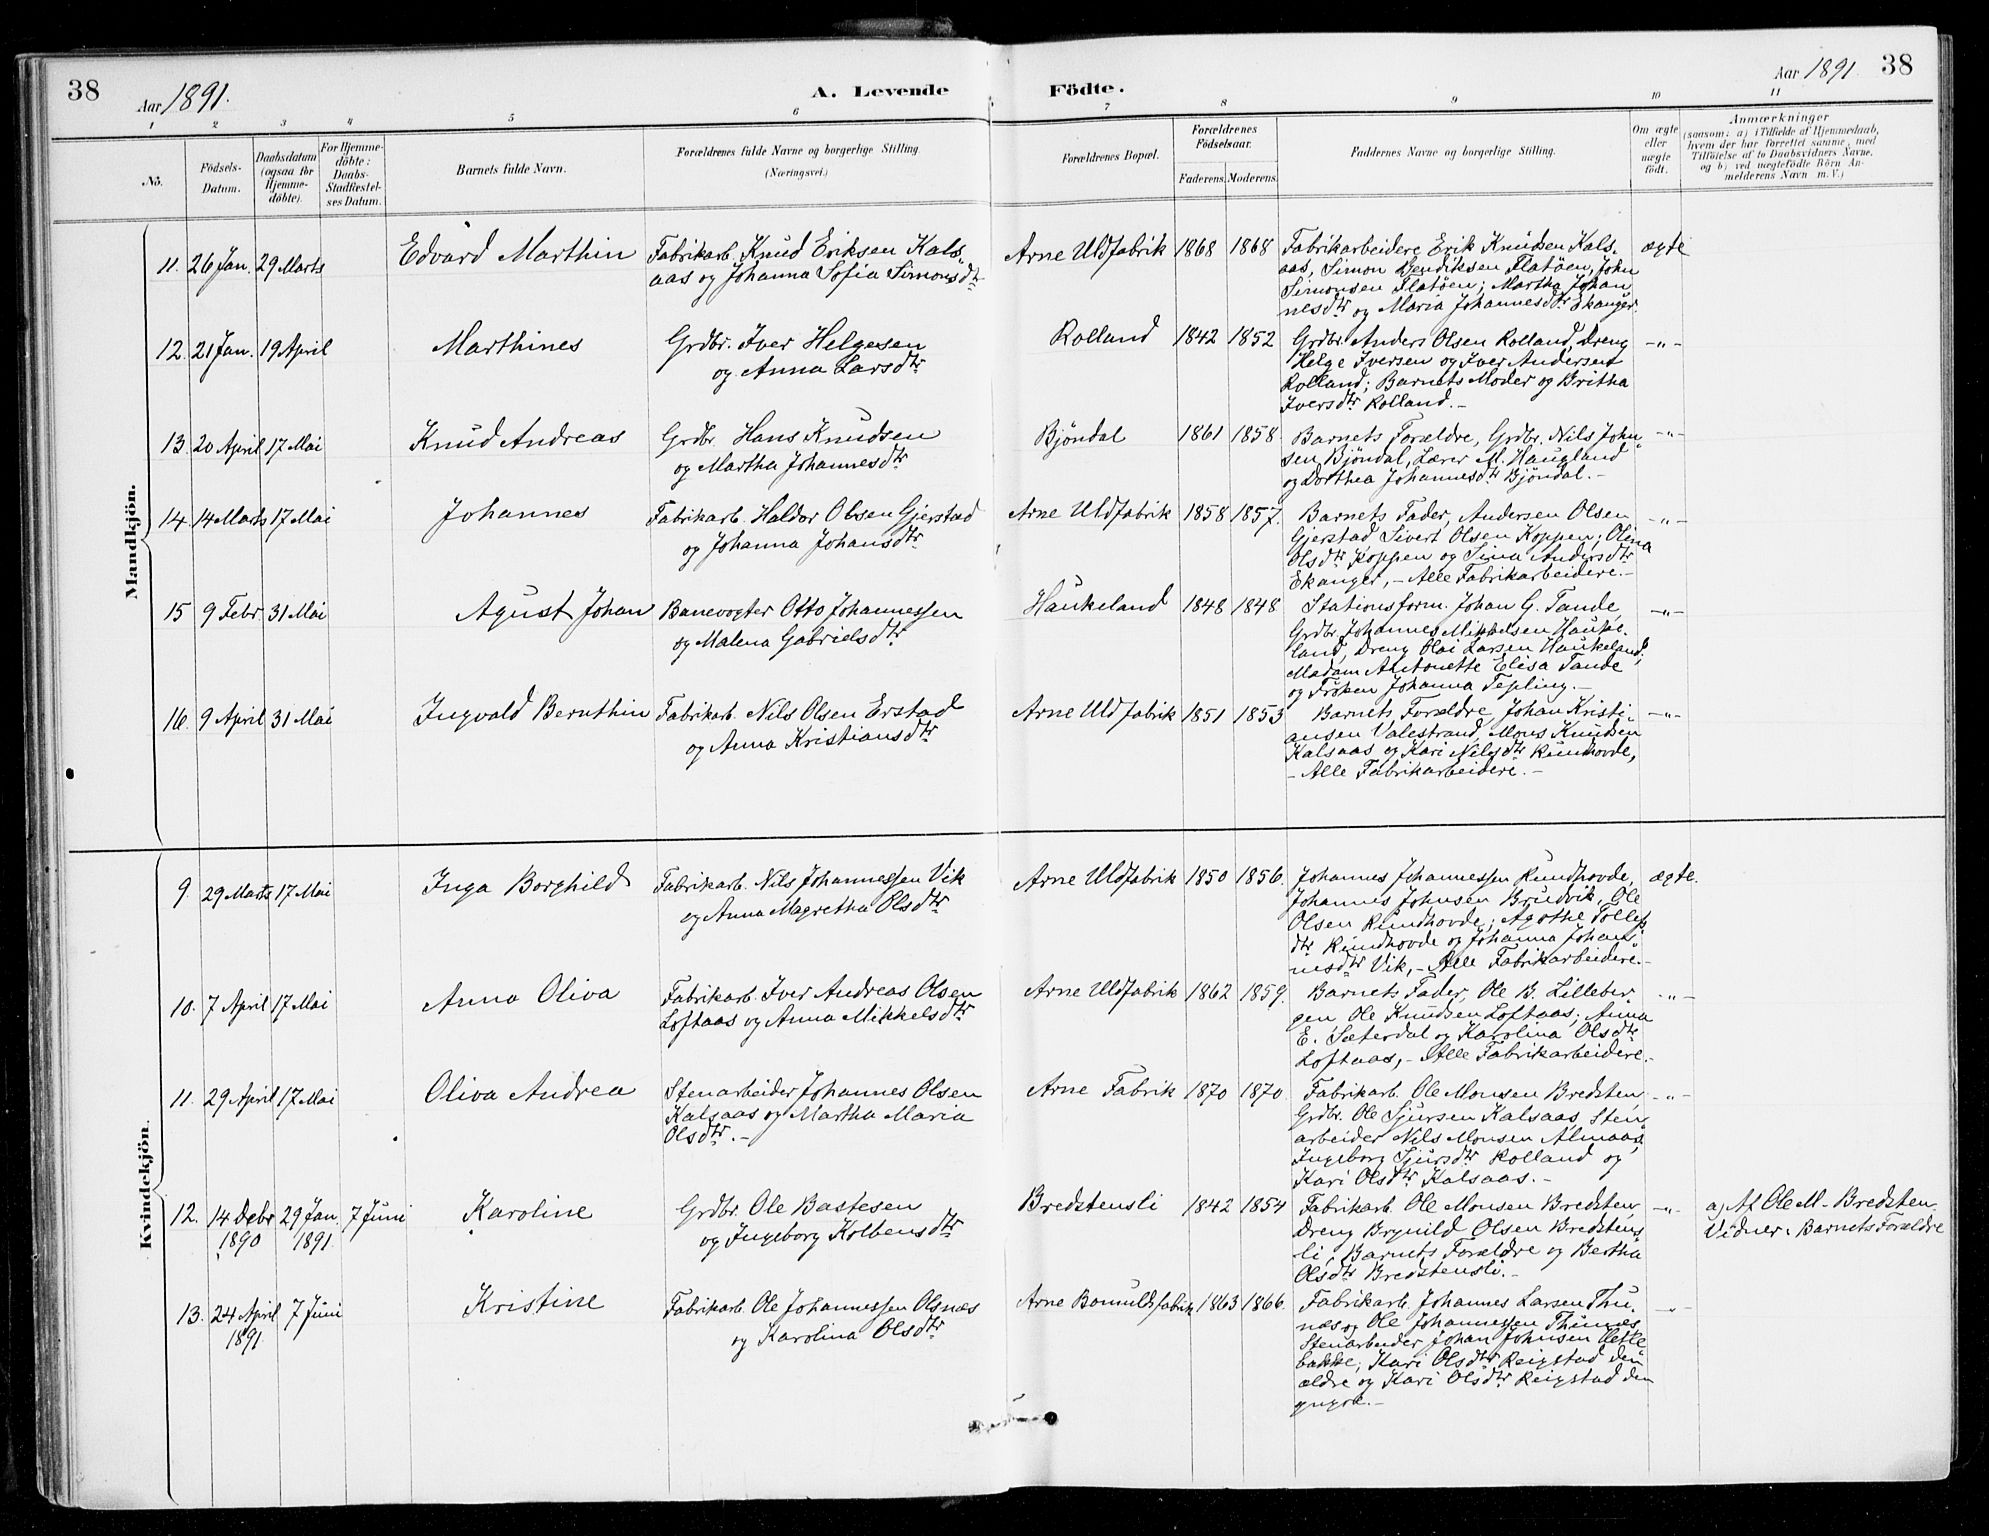 38
Aar 1891.
A. Levende
Födte.
Aar 1891
38
1 2 3 4 5 6 7 8 9 10 11
No.
Födsels-
Datum.
Daabsdatum
(ogsaa for
Hjemme-
döbte).
For Hjemme-
döbte:
Daabs-
Stadfæstel-
ses Datum.
Barnets fulde Navn.
Forældrenes fulde Navne og borgerlige Stilling.
(Næringsvei.)
Forældrenes Bopæl.
Forældrenes
Födselsaar.
Faderens. Moderens.
Faddernes Navne og borgerlige Stilling.
Om ægte
eller
uægte
födt.
Anmærkninger
(saasom: a) i Tilfælde af Hjemmedaab,
hvem der har forrettet samme, med
Tilföielse af to Daabsvidners Navne,
og b) ved uægtefödte Börn An-
melderens Navn m. V.)
Mandkjön.
11. 26 Jan. 29 Marts
Edvard Marthin
Fabrikarb. Knud Eriksen Kals-
aas og Johanna Sofia Simonsdtr
Arne Uldfabrik 1868 1868
Fabrikarbeidere Erik Knudsen Kals-
aas, Simon Hendriksen Flatöen, John
Simonsen Flatöen; Martha Johan
nesdtr og Maria Johannesdtr Ekanger.
ægte
12. 21 Jan. 19 April
Marthines
Grdbr. Iver Helgesen
og Anna Larsdtr
Rolland 1842 1852
Grdbr. Anders Olsen Rolland, Dreng
Helge Iversen og Iver Andersen
Rolland; Barnets Moder og Britha
Iversdtr Rolland.-
-"-
13. 20 April 17 Mai
Knud Andreas
Grdbr. Hans Knudsen
og Martha Johannesdtr
Bjöndal 1861 1858.
Barnets Forældre, Grdbr. Nils John-
sen Bjöndal, Lærer M. Haugland
og Dorthea Johannesdtr Bjöndal.-
-"-
14. 14 Marts 17 Mai
Johannes
Fabrikarb. Haldor Olsen Gjerstad
og Johanna Johansdtr
Arne Uldfabrik 1858 1857.
Barnets Fader, Andersen Olsen
Gjerstad Sivert Olsen Koppen; Olina
Olsdtr Koppen og Sina Andersdtr
Ekanger,- Alle Fabrikarbeidere.-
-"-
15 9 Febr. 31 Mai
Agust Johan
Banevogter Otto Johannessen
og Malena Gabrielsdtr
Haukeland 1848 1848
Stationsform. Johan G. Tande,
Grdbr. Johannes Mikkelsen Hauke-
land, Dreng Olai Larsen Haukeland;
Madam Antonette Elisa Tande
og Fröken Johanna Tepling.-
-"-
16. 9 April 31 Mai
Ingvald Bernthin
Fabrikarb. Nils Olsen Erstad
og Anna Kristiansdtr
Arne Uldfabrik 1851 1853
Barnets Forældre, Johan Kristi-
ansen Valestrand, Mons Knudsen
Kalsaas og Kari Nilsdtr Rundhovde,
- Alle Fabrikarbeidere.-
-"-
Kvindekjön.
9. 29 Marts 17 Mai
Inga Borghild
Fabrikarb. Nils Johannessen Vik
og Anna Magretha Olsdtr
Arne Uldfabrik 1850 1856.
Johannes Johannessen Rundhovde,
Johannes Johnsen Brudvik, Ole
Olsen Rundhovde; Agothe Tollefs
dtr Rundhovde og Johanna Johan-
nesdtr Vik,- Alle Fabrikarbeidere.-
ægte.
10. 7 April 17 Mai
Anna Oliva
Fabrikarb. Iver Andreas Olsen
Loftaas og Anna Mikkelsdtr
Arne Uldfabrik 1862 1859.
Barnets Fader, Ole B. Lilleber-
gen Ole Knudsen Loftaas; Anna
E. Sæterdal og Karolina Olsdtr
Loftaas,- Alle Fabrikarbeidere.-
-"-
11. 29 April 17 Mai
Oliva Andrea
Stenarbeider Johannes Olsen
Kalsaas og Martha Maria
Olsdtr.-
Arne Fabrik 1870 1870
Fabrikarb. Ole Monsen Bredsten,
Grdbr. Ole Sjursen Kalsaas, Sten-
arbeider Nils Monsen Almaas,
Ingeborg Sjursdtr Rolland og
Kari Olsdtr Kalsaas.-
-"-
12. 14 Debr 29 Jan. 7 Juni
1890 1891.
Karoline
Grdbr. Ole Bastesen
og Ingeborg Kolbensdtr
Bredstensli 1842 1854
Fabrikarb. Ole Monsen Bredsten,
Dreng Brynild Olsen Bredstens-
li, Barnets Forældre og Bertha
Olsdtr Bredstensli.-
-"-
a) Af Ole M. Bredsten
Vidner: Barnets Forældre
13. 24 April 7 Juni
1891.
Kristine
Fabrikarb. Ole Johannessen Olsnæs
og Karolina Olsdtr
Arne Bomuldsfabrik 1863 1866.
Fabrikarb. Johannes Larsen Thu-
næs og Ole Johannessen Thunæs
Stenarbeider Johan Johnsen Hetle
bakke; Kari Olsdtr Reigstad den
ældre og Kari Olsdtr Reigstad den
yngre.-
-"-